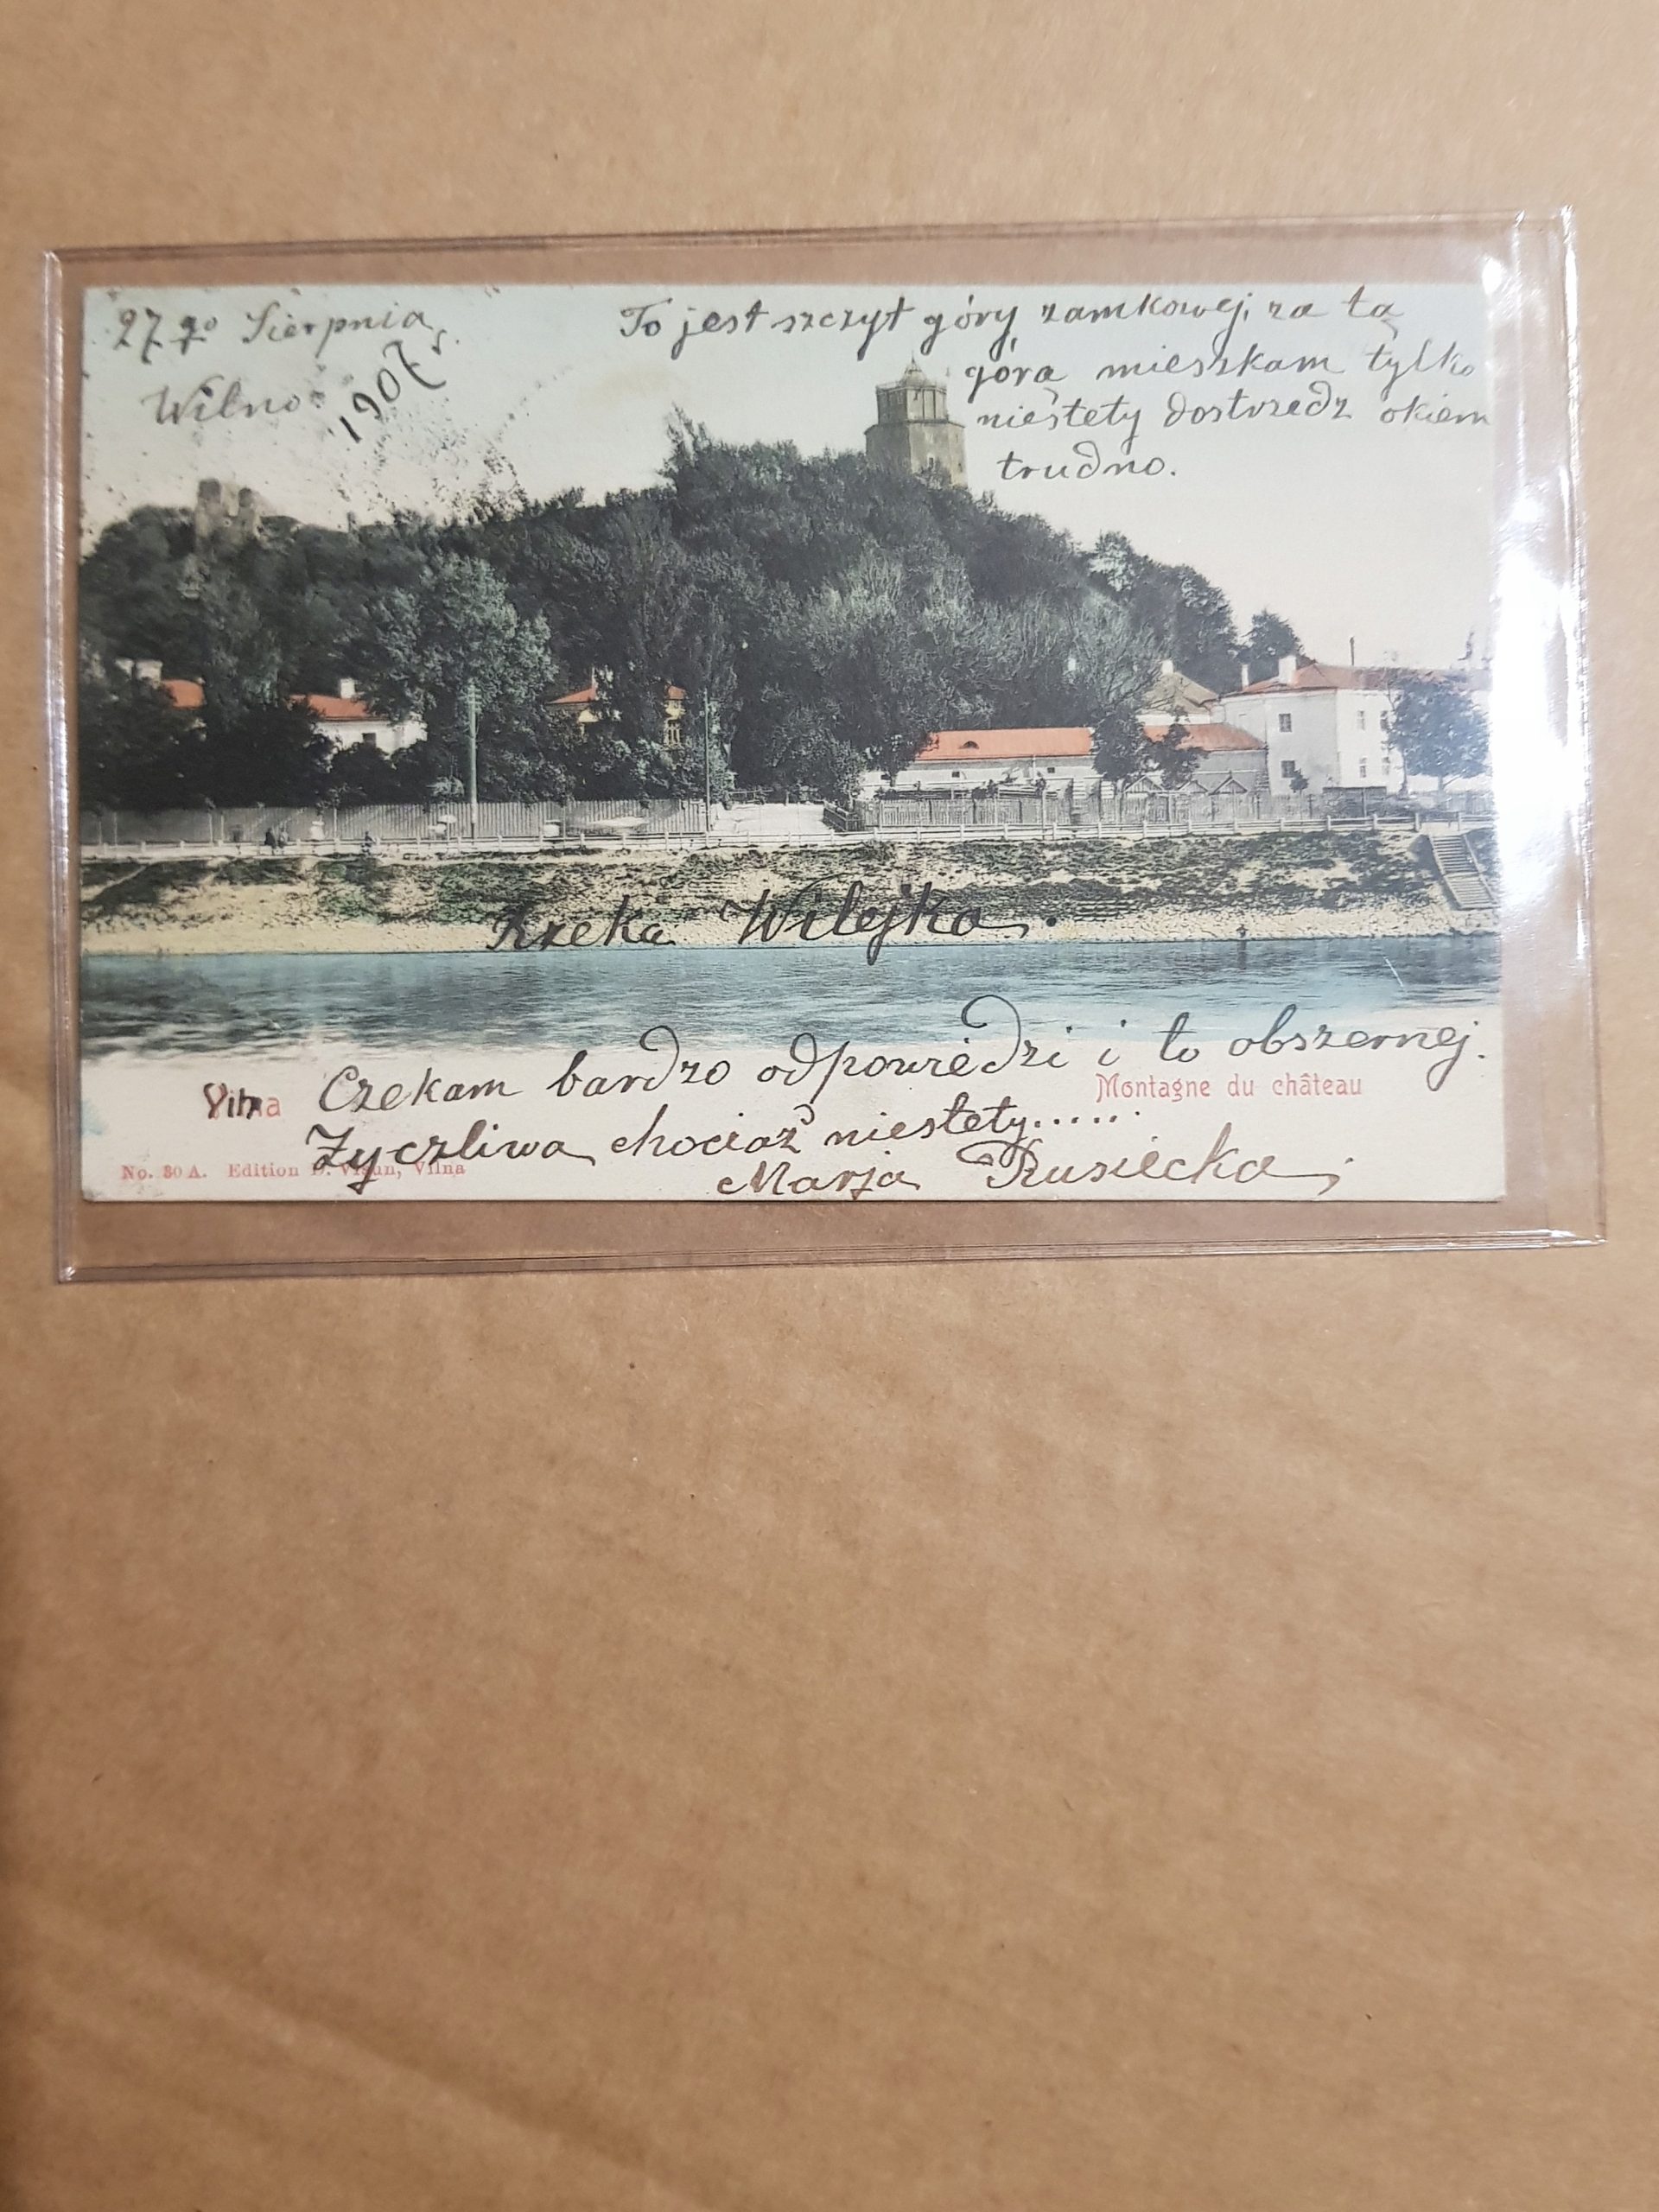 27 go Sierpnia
1907 r.
Wilno
To jest szczyt góry zamkowej, za tą
górą mieszkam tylko
niestety dostrzedz okiem
trudno.
Rzeka Wilejka.
Czekam bardzo odpowiedzi i to obszernej.
Vilna
Montagne du château
Życzliwa chociaż niestety......
No. 30 A. Edition D. Visun, Vilna
Marja Rusiecka